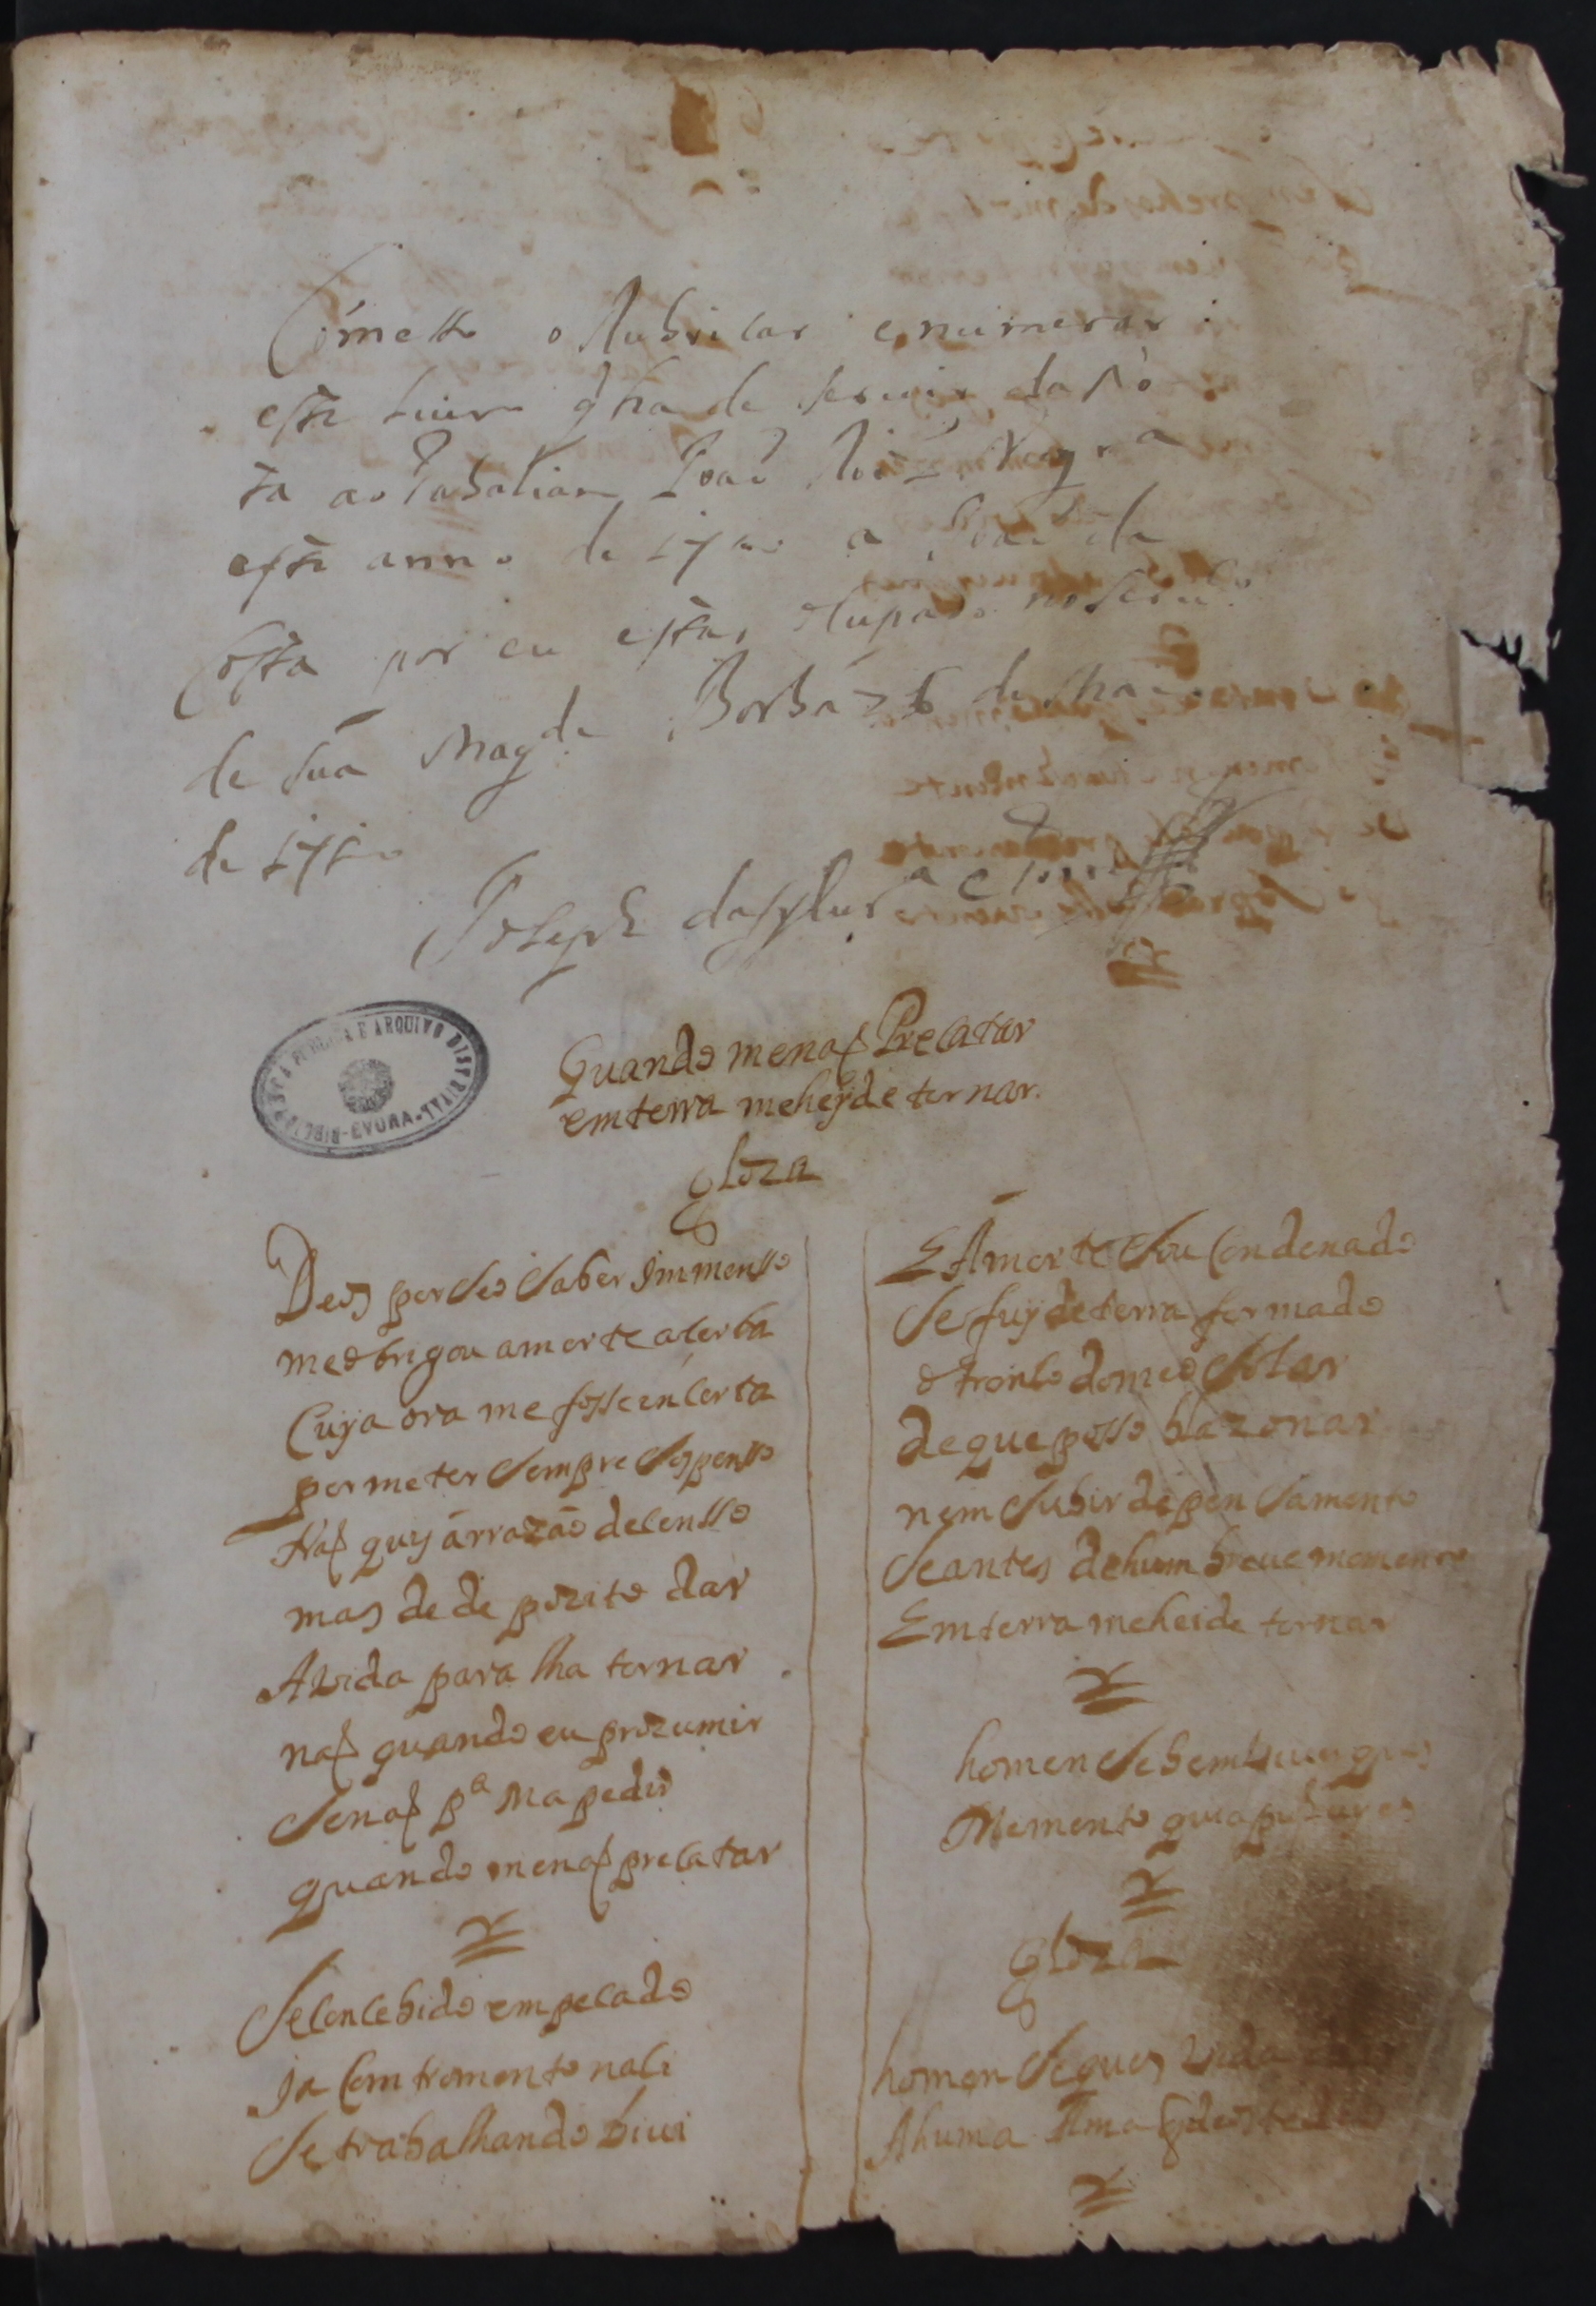 Cometto o Rubricar e numerar
este Liuro q̃ ha de seruir de No
ta ao Tabaliam Joaõ Roiz Nogra
este anno de 1710 a Joaõ da
Costa por eu estar occupado no seru.ço
de sua Magde. Borba 26 de Março
de 1710
Joseph da Sylua
BIBLIOTECA PUBLICA E ARQUIVO DISTRITAL - EVORA -
Quando me naõ Precatar
em terra me heyde tornar.
gloza
Deos por seo saber Immenso
me obrigou a morte acerba
Cuja ora me fosse encerta
por me ter sempre sospenso
Naõ quis arrazaõ de censso
mas de depozito dar
A vida para lha tornar
naõ quando eu prozumir
senaõ pa ma pedir
quando me naõ precatar
Se concebido em pecado
Ja com tromento naci
Se trabalhando viui
E A morte sou Condenado
Se fuy de terra formado
o tronco do meo solar
de que posso blazonar
nem subir de pensamento
Se antes de hum breue momento
Em terra me heide tornar
homen se bem
Memento quia
gloza
homen segues vida
A huma Alma